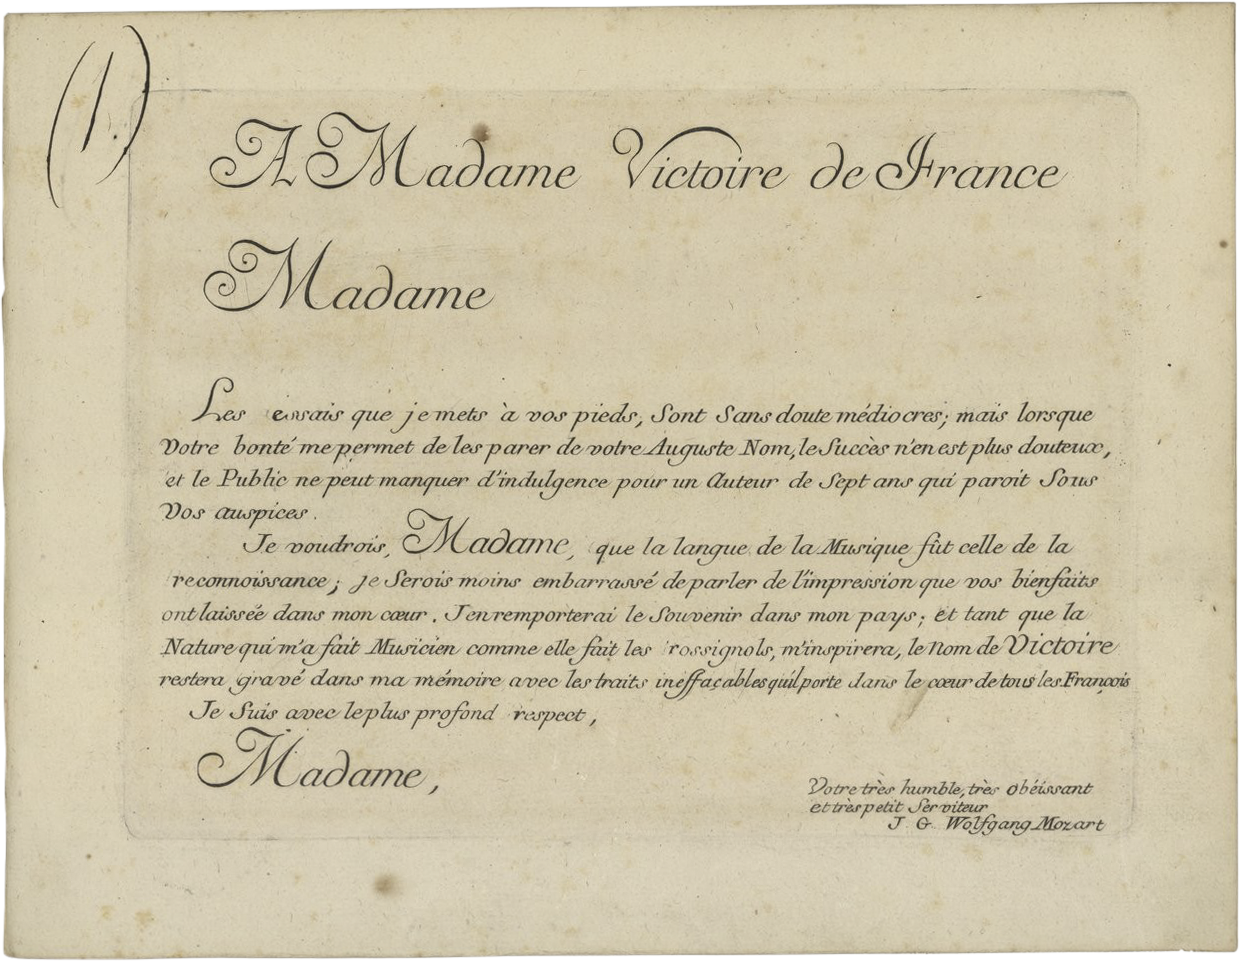 (1.)
A Madame Victoire de France
Madame
Les essais que je mets à vos pieds, Sont Sans doute médiocres; mais lorsque
Votre bonté me permet de les parer de votre Auguste Nom, le Succès n'en est plus douteux,
et le Public ne peut manquer d'indulgence pour un Auteur de Sept ans qui paroit Sous
Vos auspices.
Je voudrois, Madame, que la langue de la Musique fût celle de la
reconnoissance; je Serois moins embarrassé de parler de l'impression que vos bienfaits
ont laissée dans mon cœur. J'en remporterai le Souvenir dans mon pays; et tant que la
Nature qui m'a fait Musicien comme elle fait les rossignols, m'inspirera, le Nom de Victoire
restera gravé dans ma mémoire avec les traits ineffaçables qu'il porte dans le cœur de tous les François
Je Suis avec le plus profond respect,
Madame,
Votre très humble, très obéissant
et très petit Serviteur
J. G. Wolfgang Mozart